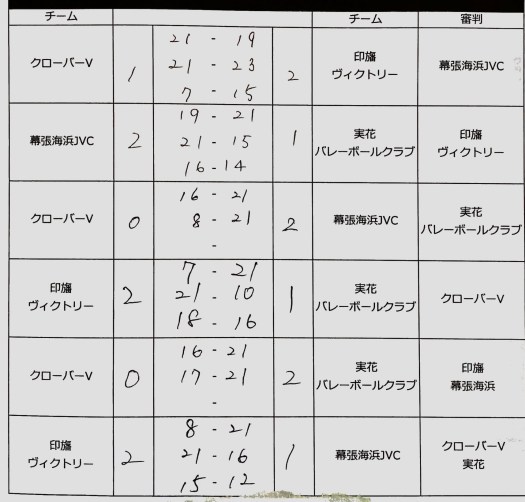 チーム チーム 審判
クローバーV 1 21 - 19 2 印旛 ヴィクトリー 幕張海浜JVC
21 - 23
7 - 15
幕張海浜JVC 2 19 - 21 1 実花 バレーボールクラブ 印旛 ヴィクトリー
21 - 15
16 - 14
クローバーV 0 16 - 21 2 幕張海浜JVC 実花 バレーボールクラブ
8 - 21
-
印旛 ヴィクトリー 2 7 - 21 1 実花 バレーボールクラブ クローバーV
21 - 10
18 - 16
クローバーV 0 16 - 21 2 実花 バレーボールクラブ 印旛 幕張海浜
17 - 21
-
印旛 ヴィクトリー 2 8 - 21 1 幕張海浜JVC クローバーV 実花
21 - 16
15 - 12